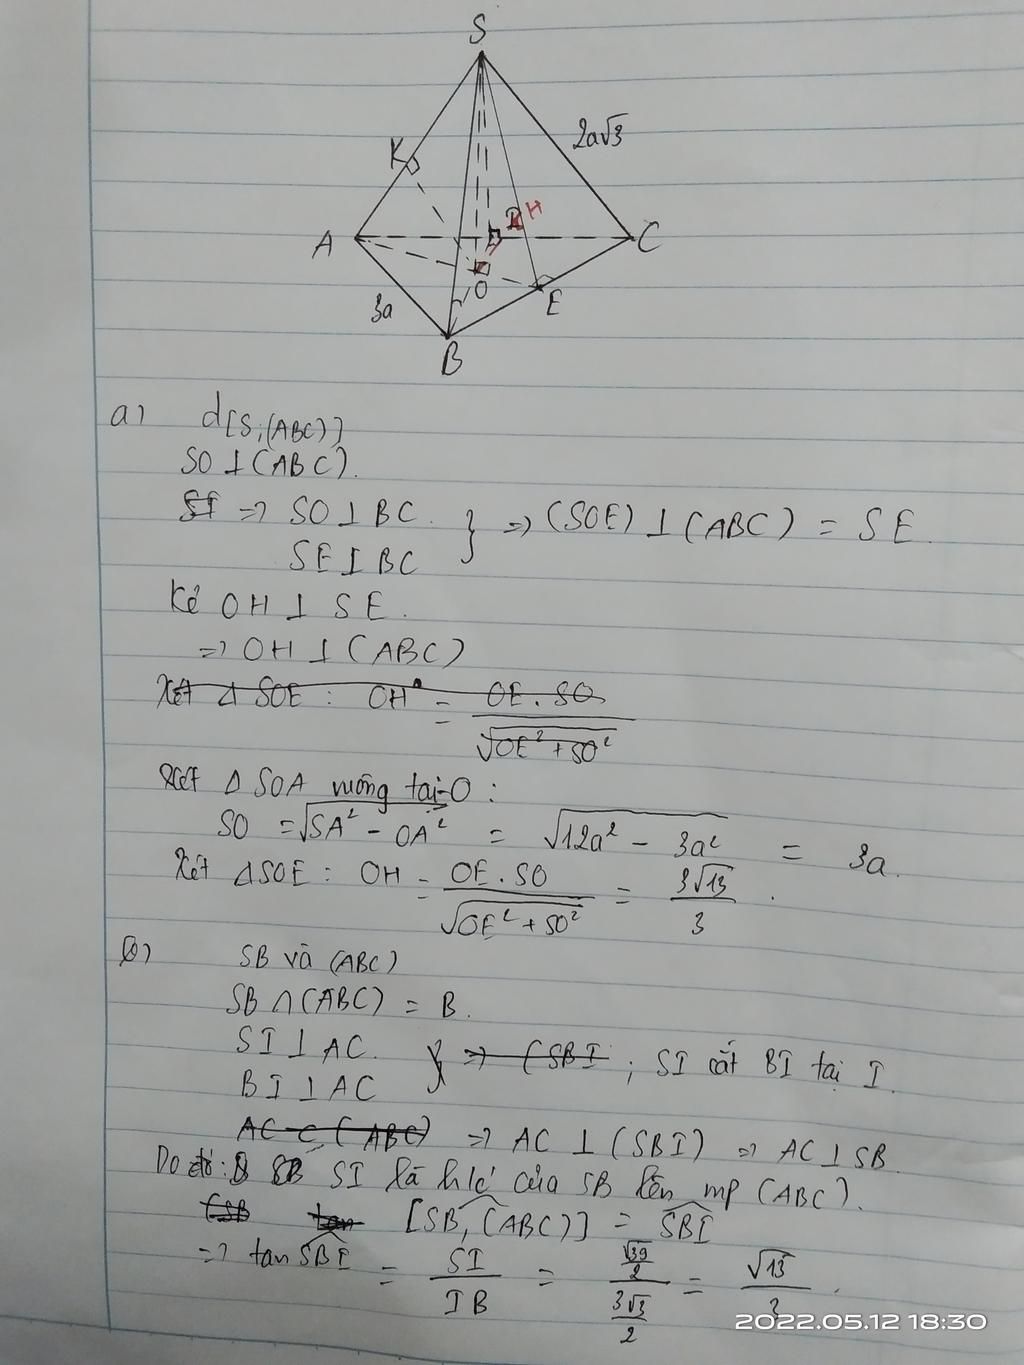 S
K
2a√3
H
A
C
O
E
3a
B
a) d[S;(ABC)]
SO ⊥ (ABC).
=> SO ⊥ BC. } => (SOE) ⊥ (ABC) = SE.
SE ⊥ BC
Kẻ OH ⊥ SE.
=> OH ⊥ (ABC)
Xét Δ SOE : OH = OE . SO / √OE² + SO²
Xét Δ SOA vuông tại O :
SO = √SA² - OA² = √12a² - 3a² = 3a.
Xét ΔSOE : OH = OE . SO / √OE² + SO² = 3√13 / 3 .
b) SB và (ABC)
SB ∩ (ABC) = B.
SI ⊥ AC. } => (SBI ; SI cắt BI tại I.
BI ⊥ AC
AC ⊂ (ABC) => AC ⊥ (SBI) => AC ⊥ SB.
Do đó : SB SI là h/c của SB lên mp (ABC).
(SB tan [SB, (ABC)] = SBI
=> tan SBI = SI / IB = √39/2 / 3√3/2 = √13 / 3 .
2022.05.12 18:30